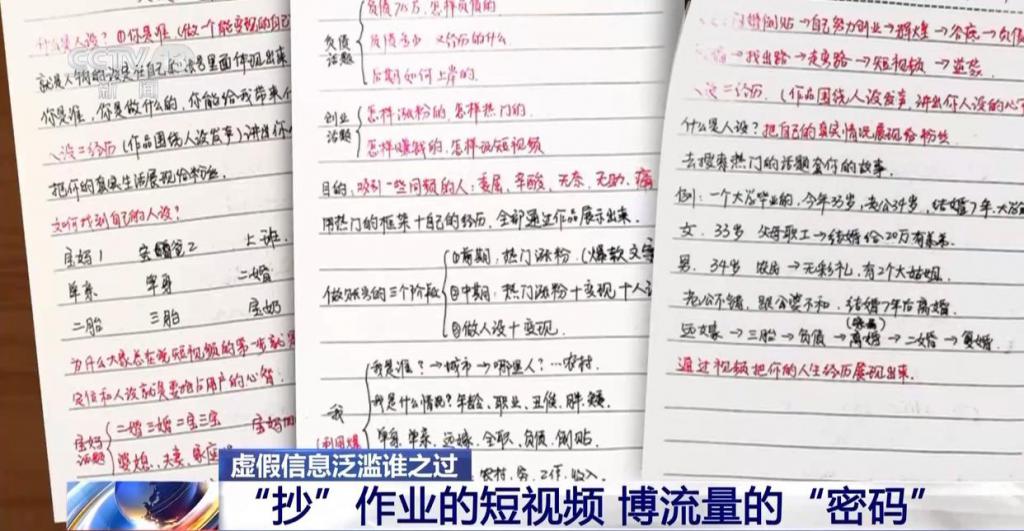 CCTV
新闻
什么是人设？①你是谁（做个能变现的自己
你是谁，你是做什么的，你能给我带来什
人设=经历（作品围绕人设发声）讲出你
把你的真实生活展现给粉丝.
如何找到自己的人设？
宝妈1 宝爸2 上班.
单亲 单身 二婚
二胎 三胎 宝奶
为什么大家总在说短视频的第一步就是
定位和人设就是要抢占用户的心智:
宝妈话题
二婚三婚二宝三宝 宝妈
婆媳、夫妻、家庭
负债话题
负债70万，怎样负债的
负债多少 又经历的什么
后期如何上岸的.
创业话题
怎样涨粉的，怎样热门的
怎样赚钱的，怎样说短视频
目的，吸引一些同频的人：委屈，辛酸，无奈，无助，痛
用热门的框架十自己的经历，全部通过作品展示出来.
做账号的三个阶段
①前期，热门涨粉（爆款文案
②中期，热门涨粉十变现十人设
③做人设十变现.
我
我是谁？→城市→哪里人？…农村.
我是什么情况？年龄、职业、丑、矮、胖
单身，单亲，远嫁，全职，负债，倒贴.
农村，务工作，收入
→自己努力创业→辉煌→谷底→负债
→找出路→走弯路→短视频→逆袭.
人设=经历.（作品围绕人设发声，讲出你人设的心
什么是人设？把自己的真实情况展现给粉丝
去搜索热门的话题套你的故事.
例：一个大龄毕业的，今年33岁，老公34岁，结婚7年，大龄
女. 33岁 父母职工→结婚给20万有弟弟.
男. 34岁 农民→无彩礼，有2个大姑姐.
老公不错，跟公婆不和，结婚7年后离婚.
远嫁→三胎→负债→离婚→二婚→复婚.
通过视频把你的人生经历展现出来.
虚假信息泛滥谁之过
“抄”作业的短视频 博流量的“密码”